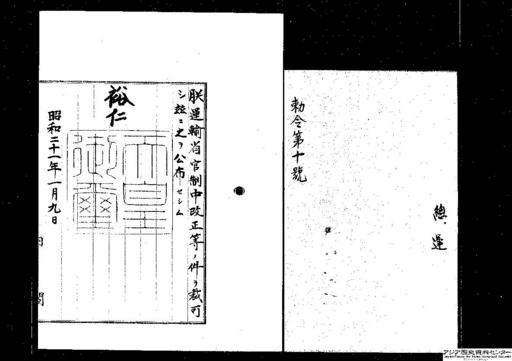 總、運
勅令第十號
朕運輸省官制中改正等ノ件ヲ裁可
シ玆ニ之ヲ公布セシム
裕仁
天皇御璽
昭和二十一年一月九日
内閣
アジア歴史資料センター
Japan Center for Asian Historical Records